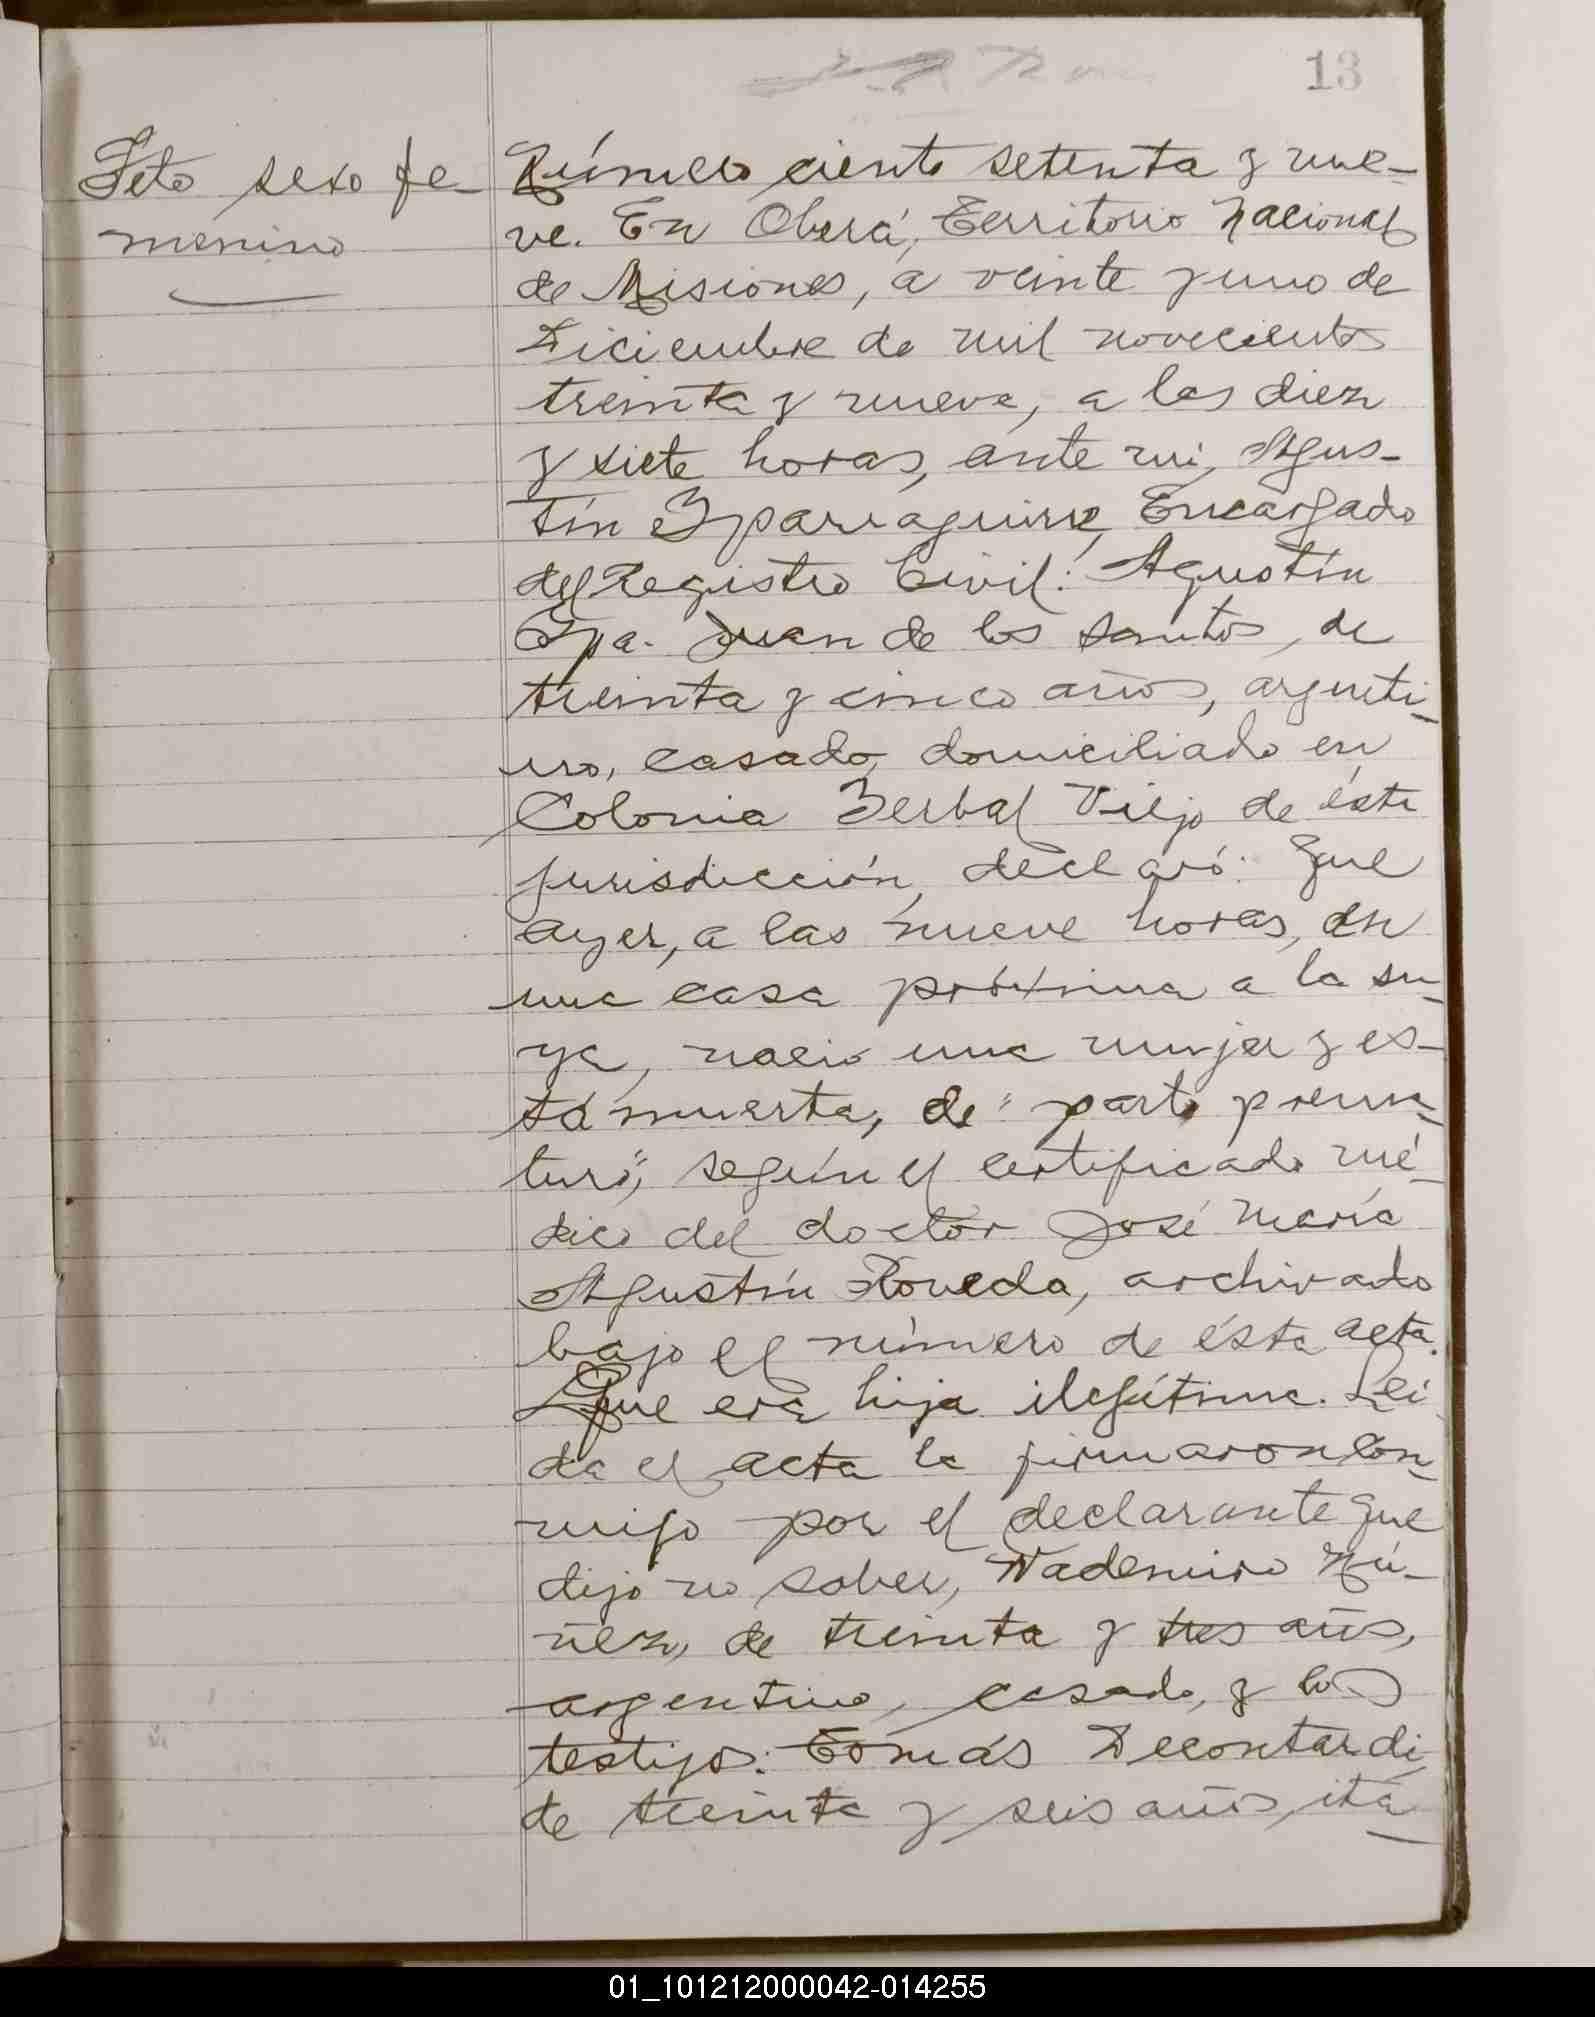 13
Feto sexo fe-
menino
Número ciento setenta y nue-
ve. En Oberá, Territorio Nacional
de Misiones, a veinte y uno de
Diciembre de mil novecientos
treinta y nueve, a las diez
y siete horas, ante mi, Agus-
tín Yparraguirre, Encargado
del Registro Civil: Agustín
Juan de los Santos, de
treinta y cinco años, argenti-
no, casado, domiciliado en
Colonia Yerbal Viejo de ésta
jurisdicción, declaró: Que
ayer, a las nueve horas, en
una casa próxima a la su-
ya, nació una mujer y es-
tá muerta, de "parto prema-
turo", según el certificado mé-
dico del doctor José María
Agustín Roveda, archivado
bajo el número de ésta acta.
Que era hija ilegítima. Leí-
da el acta la firmaron con-
migo por el declarante que
dijo no saber, Wademiro Nú-
ñez, de treinta y tres años,
argentino, casado, y los
testigos: Tomás Decontardi,
de treinta y seis años, ita-
01_101212000042-014255